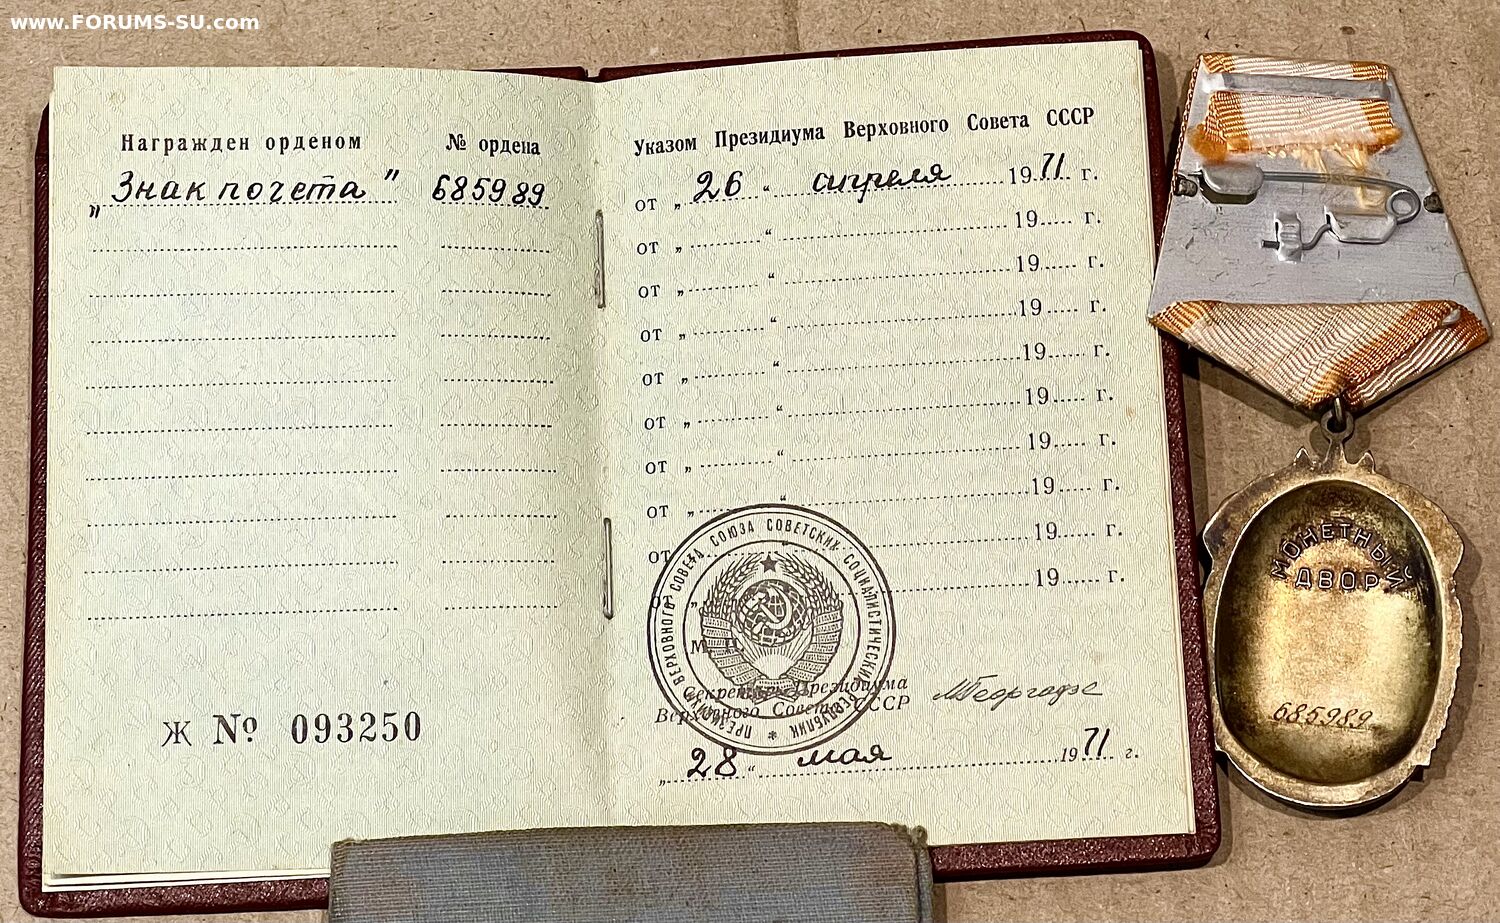 www.FORUMS-SU.com
Награжден орденом № ордена
„Знак почета" 685989
Ж № 093250
Указом Президиума Верховного Совета СССР
от „26“ апреля 1971 г.
от „ “ 19 г.
от „ “ 19 г.
от „ “ 19 г.
от „ “ 19 г.
от „ “ 19 г.
от „ “ 19 г.
от „ “ 19 г.
от „ “ 19 г.
от „ “ 19 г.
ПРЕЗИДИУМ ВЕРХОВНОГО СОВЕТА СОЮЗА СОВЕТСКИХ СОЦИАЛИСТИЧЕСКИХ РЕСПУБЛИК
М. П.
Секретарь Президиума
Верховного Совета СССР
МГеоргадзе
„28“ мая 1971 г.
МОНЕТНЫЙ
ДВОР
685989